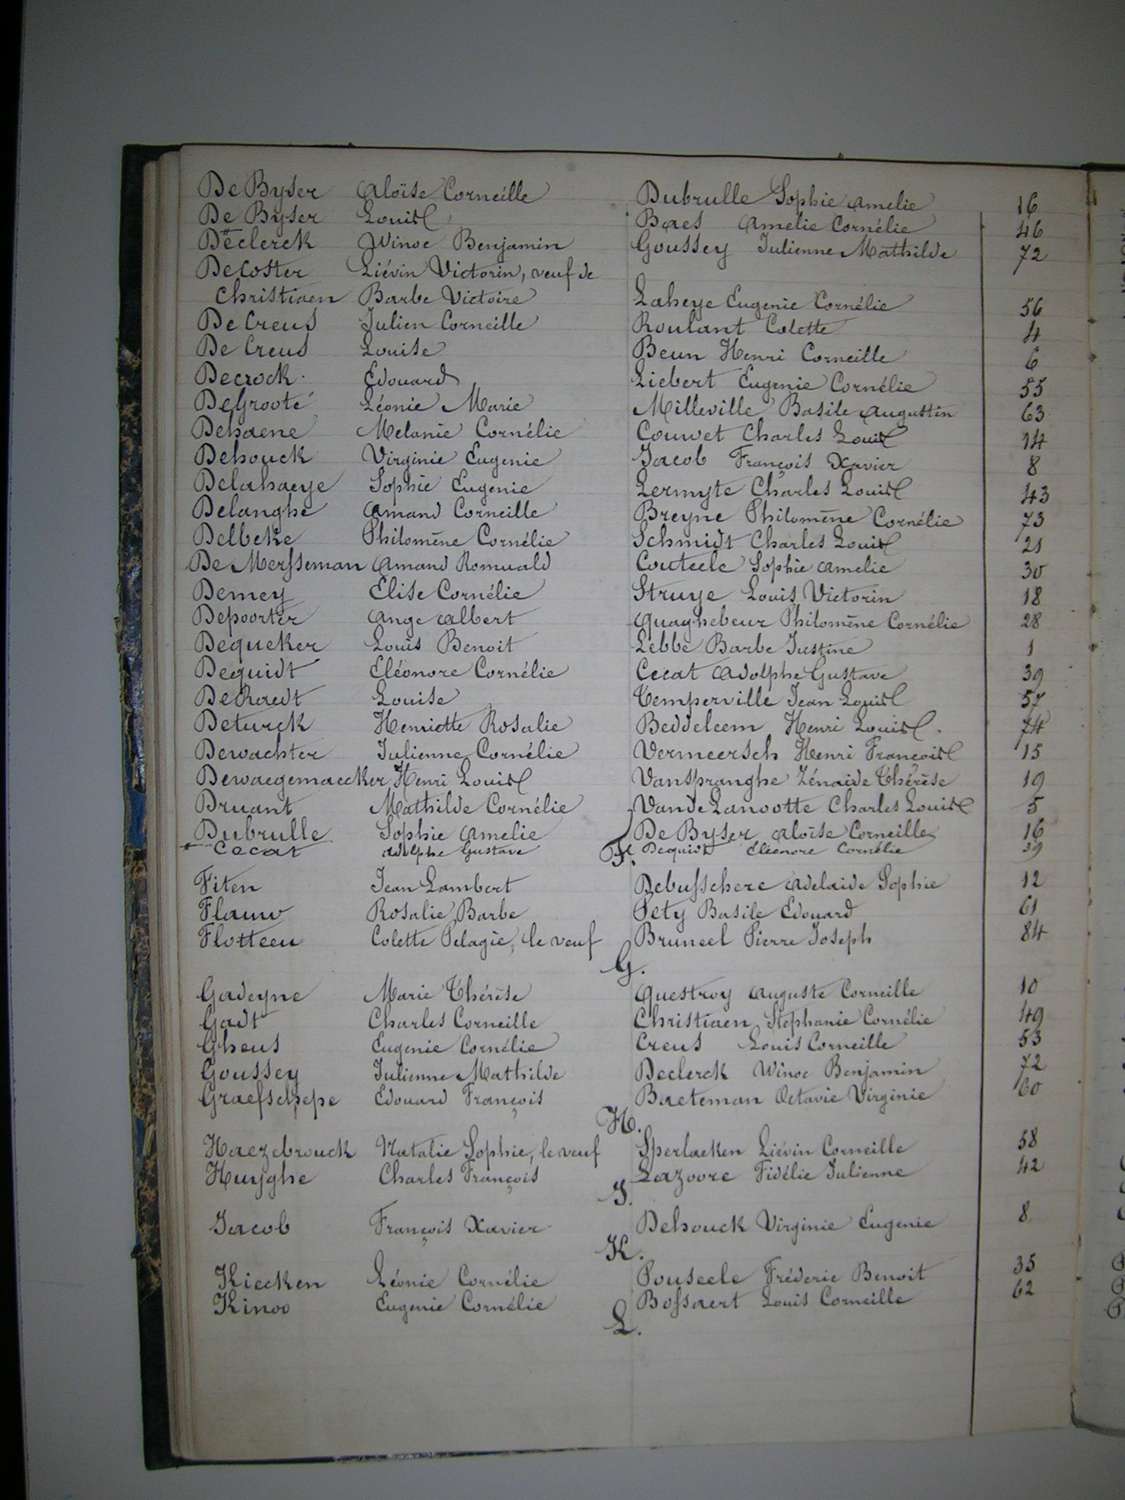 De Byser Aloïse Corneille Dubrulle Sophie Amelie 16
De Byser Louis Baes Amelie Cornélie 46
Declerck Winoc Benjamin Goussey Julienne Mathilde 72
Decoster Liévin Victorin, veuf de
Christiaen Barbe Victoire Laheye Eugenie Cornélie 56
De Creus Julien Corneille Roulant Colette 4
De Creus Louise Beun Henri Corneille 6
Decrock Edouard Liebert Eugenie Cornélie 55
De Groote Léonie Marie Milleville Basile Augustin 63
Dehaene Melanie Cornélie Couwet Charles Louis 14
Dehouck Virginie Eugenie Jacob François Xavier 8
Delahaeye Sophie Eugenie Lermyte Charles Louis 43
Delanghe Amand Corneille Breyne Philomène Cornélie 73
Delbeke Philomène Cornélie Schmidt Charles Louis 21
De Mersseman Amand Romuald Couteele Sophie Amelie 30
Demey Elise Cornélie Struye Louis Victorin 18
Depoorter Ange Albert Quaghebeur Philomène Cornélie 28
Dequeker Louis Benoit Lebbe Barbe Justine 1
Dequidt Eléonore Cornélie Cecat Adolphe Gustave 39
De Roedt Louise Temperville Jean Louis 57
Deturck Henriette Rosalie Beddeleem Henri Louis 74
Dewachter Julienne Cornélie Vermeersch Henri François 15
Dewaegemaecker Henri Louis Vanspranghe Zénaide Thérèse 19
Druant Mathilde Cornélie Vande Lanootte Charles Louis 5
Dubrulle Sophie Amelie De Byser Aloïse Corneille 16
Cecat Adolphe Gustave Dequidt Eléonore Cornélie 39
F.
Fiten Jean Lambert Debusschere Adelaide Sophie 12
Flauw Rosalie Barbe Péty Basile Edouard 61
Flotteeu Colette Pelagie, le veuf Bruneel Pierre Joseph 84
G.
Gadeyne Marie Thérèse Questroy Auguste Corneille 10
Gadt Charles Corneille Christiaen Stephanie Cornélie 49
Gheus Eugenie Cornélie Creus Louis Corneille 53
Goussey Julienne Mathilde Declerck Winoc Benjamin 72
Graefschepe Edouard François Baeteman Octavie Virginie 60
H.
Haezebrouck Natalie Sophie, le veuf Sperlaeken Liévin Corneille 58
Huyghe Charles François Lazoore Fidélie Julienne 42
J.
Jacob François Xavier Dehouck Virginie Eugenie 8
K.
Kiecken Léonie Cornélie Pouseele Fréderic Benoit 35
Kinoo Eugenie Cornélie Bossaert Louis Corneille 62
L.